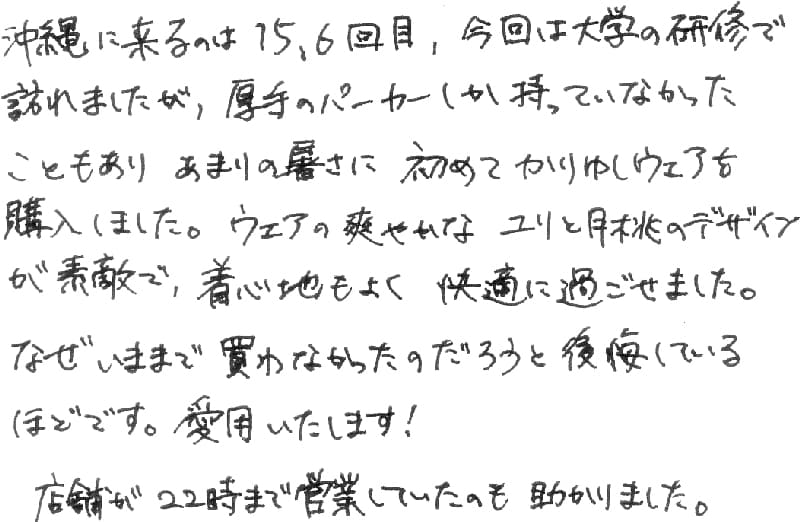 沖縄に来るのは15、6回目、今回は大学の研修で
訪れましたが、厚手のパーカーしか持っていなかった
こともあり あまりの暑さに 初めて かりゆしウェアを
購入しました。ウェアの爽やかな ユリと月桃のデザイン
が素敵で、着心地もよく 快適に過ごせました。
なぜいままで買わなかったのだろうと後悔している
ほどです。愛用いたします!
店舗が22時まで営業していたのも助かりました。